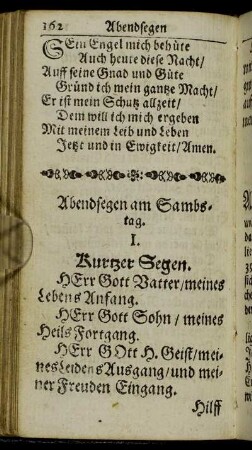 362 Abendsegen
SEin Engel mich behüte
Auch heute diese Nacht/
Auff seine Gnad und Güte
Gründ ich mein gantze Macht/
Er ist mein Schutz allzeit/
Dem will ich mich ergeben
Mit meinem Leib und Leben
Jetzt und in Ewigkeit/Amen.
Abendsegen am Sambs-
tag.
I.
Kurtzer Segen.
HErr Gott Vatter/meines
Lebens Anfang.
HErr Gott Sohn/ meines
Heils Fortgang.
HErr GOtt H. Geist/ mei-
nes Leidens Ausgang/ und mei-
ner Freuden Eingang.
Hilff